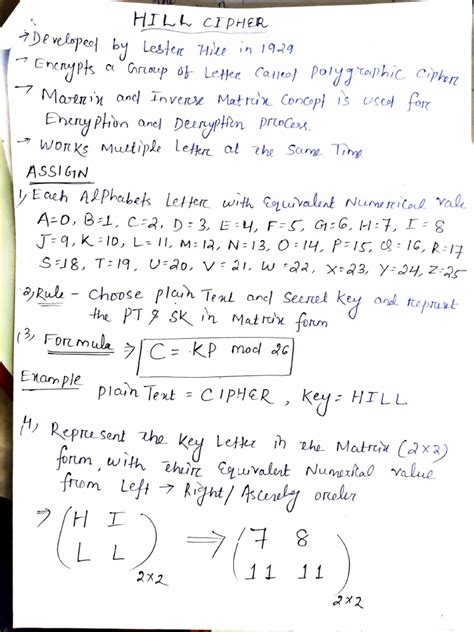 HILL CIPHER
→ Developed by Lester Hill in 1929
→ Encrypts a Group of Letter Called polygraphic cipher
→ Matrix and Inverse Matrix Concept is used for
Encryption and Decryption process.
→ Works Multiple Letter at the Same Time
ASSIGN
1) Each Alphabets Letter with Equivalent Numerical vale
A=0, B=1, C=2, D=3, E=4, F=5, G=6, H=7, I=8
J=9, K=10, L=11, M=12, N=13, O=14, P=15, Q=16, R=17
S=18, T=19, U=20, V=21, W=22, X=23, Y=24, Z=25
2) Rule - Choose plain Text and Secret Key and represent
the PT & SK in Matrix form
3) Formula ⇒ C = KP mod 26
Example
Plain Text = CIPHER, Key = HILL
4) Represent the Key Letter in the Matrix (2×2)
form, with their Equivalent Numerical value
from Left → Right/ order
⇒ (H I ⇒ (7 8
L L) 2×2 11 11) 2×2